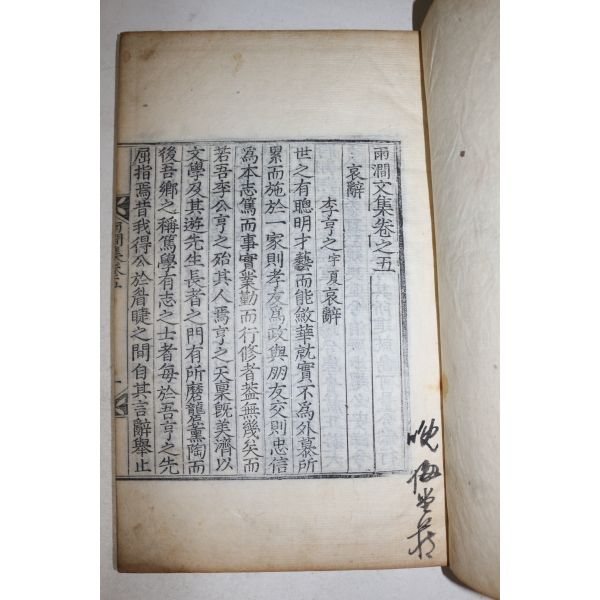 雨澗文集卷之五
哀辭
李亨之宇夏哀辭
世之有聰明才藝而能斂華就實不為外慕所
累而施於一家則孝友為政與朋友交則忠信
為本志篤而事實業勤而行修者蓋無幾矣而
若吾李公亨之殆其人焉亨之天稟旣美濟以
文學及其遊先生長者之門有所磨礱熏陶而
後吾鄉之稱篤學有志之士者每於吾亨之先
屈指焉昔我得公於眉睫之間自其言辭舉止
雨澗集卷五
一
晚梅堂藏